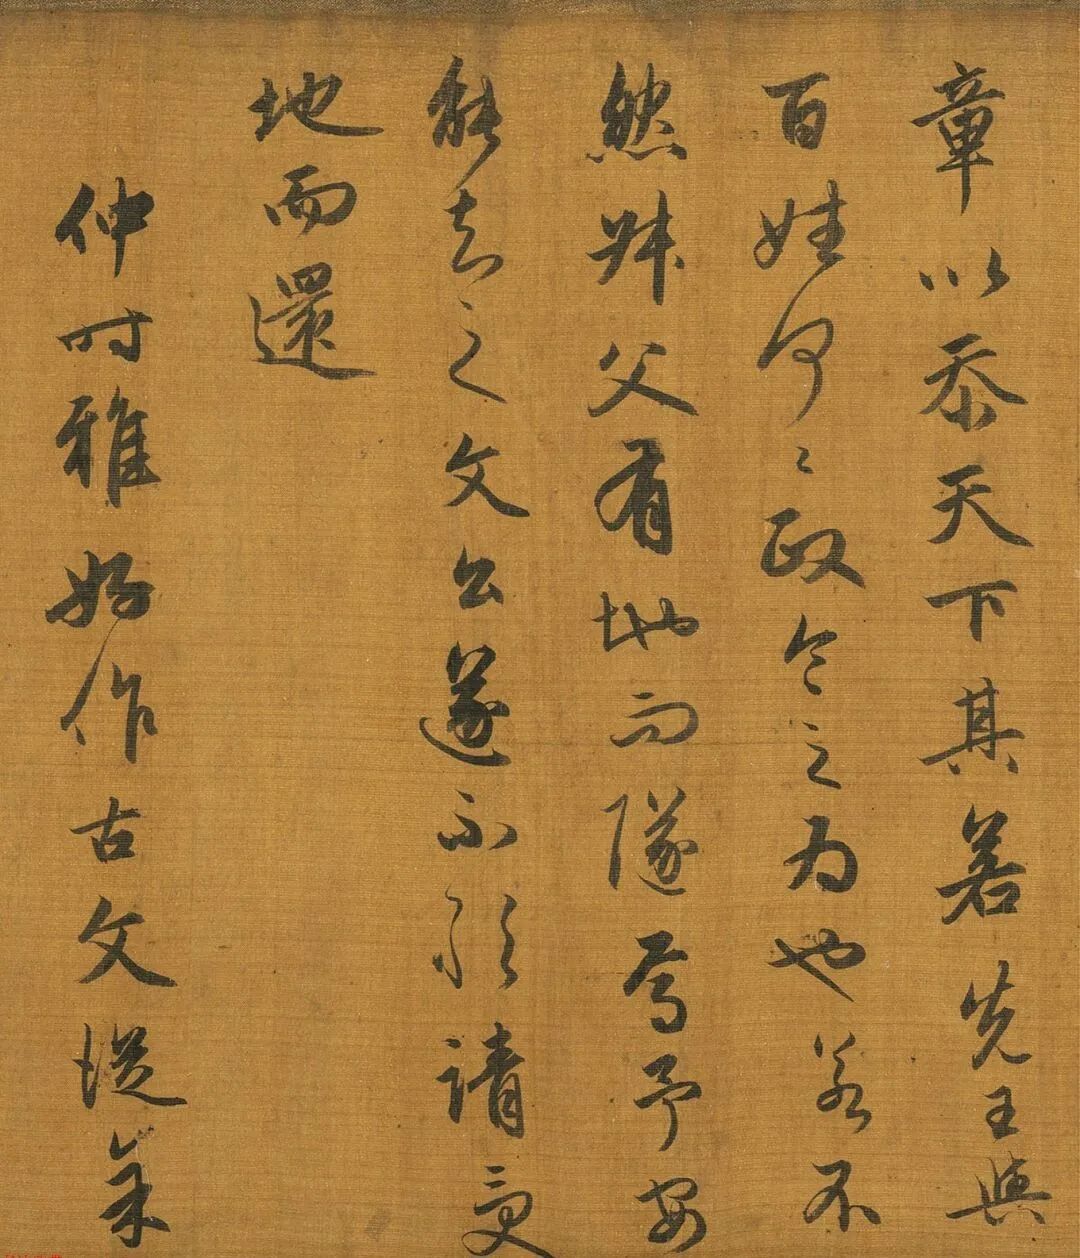 章以忝天下其若先王與
百姓何〻政令之為也若不
然叔父有地而隧焉予安
能知之文公遂不敢請受
地而還
仲時雅好作古文從